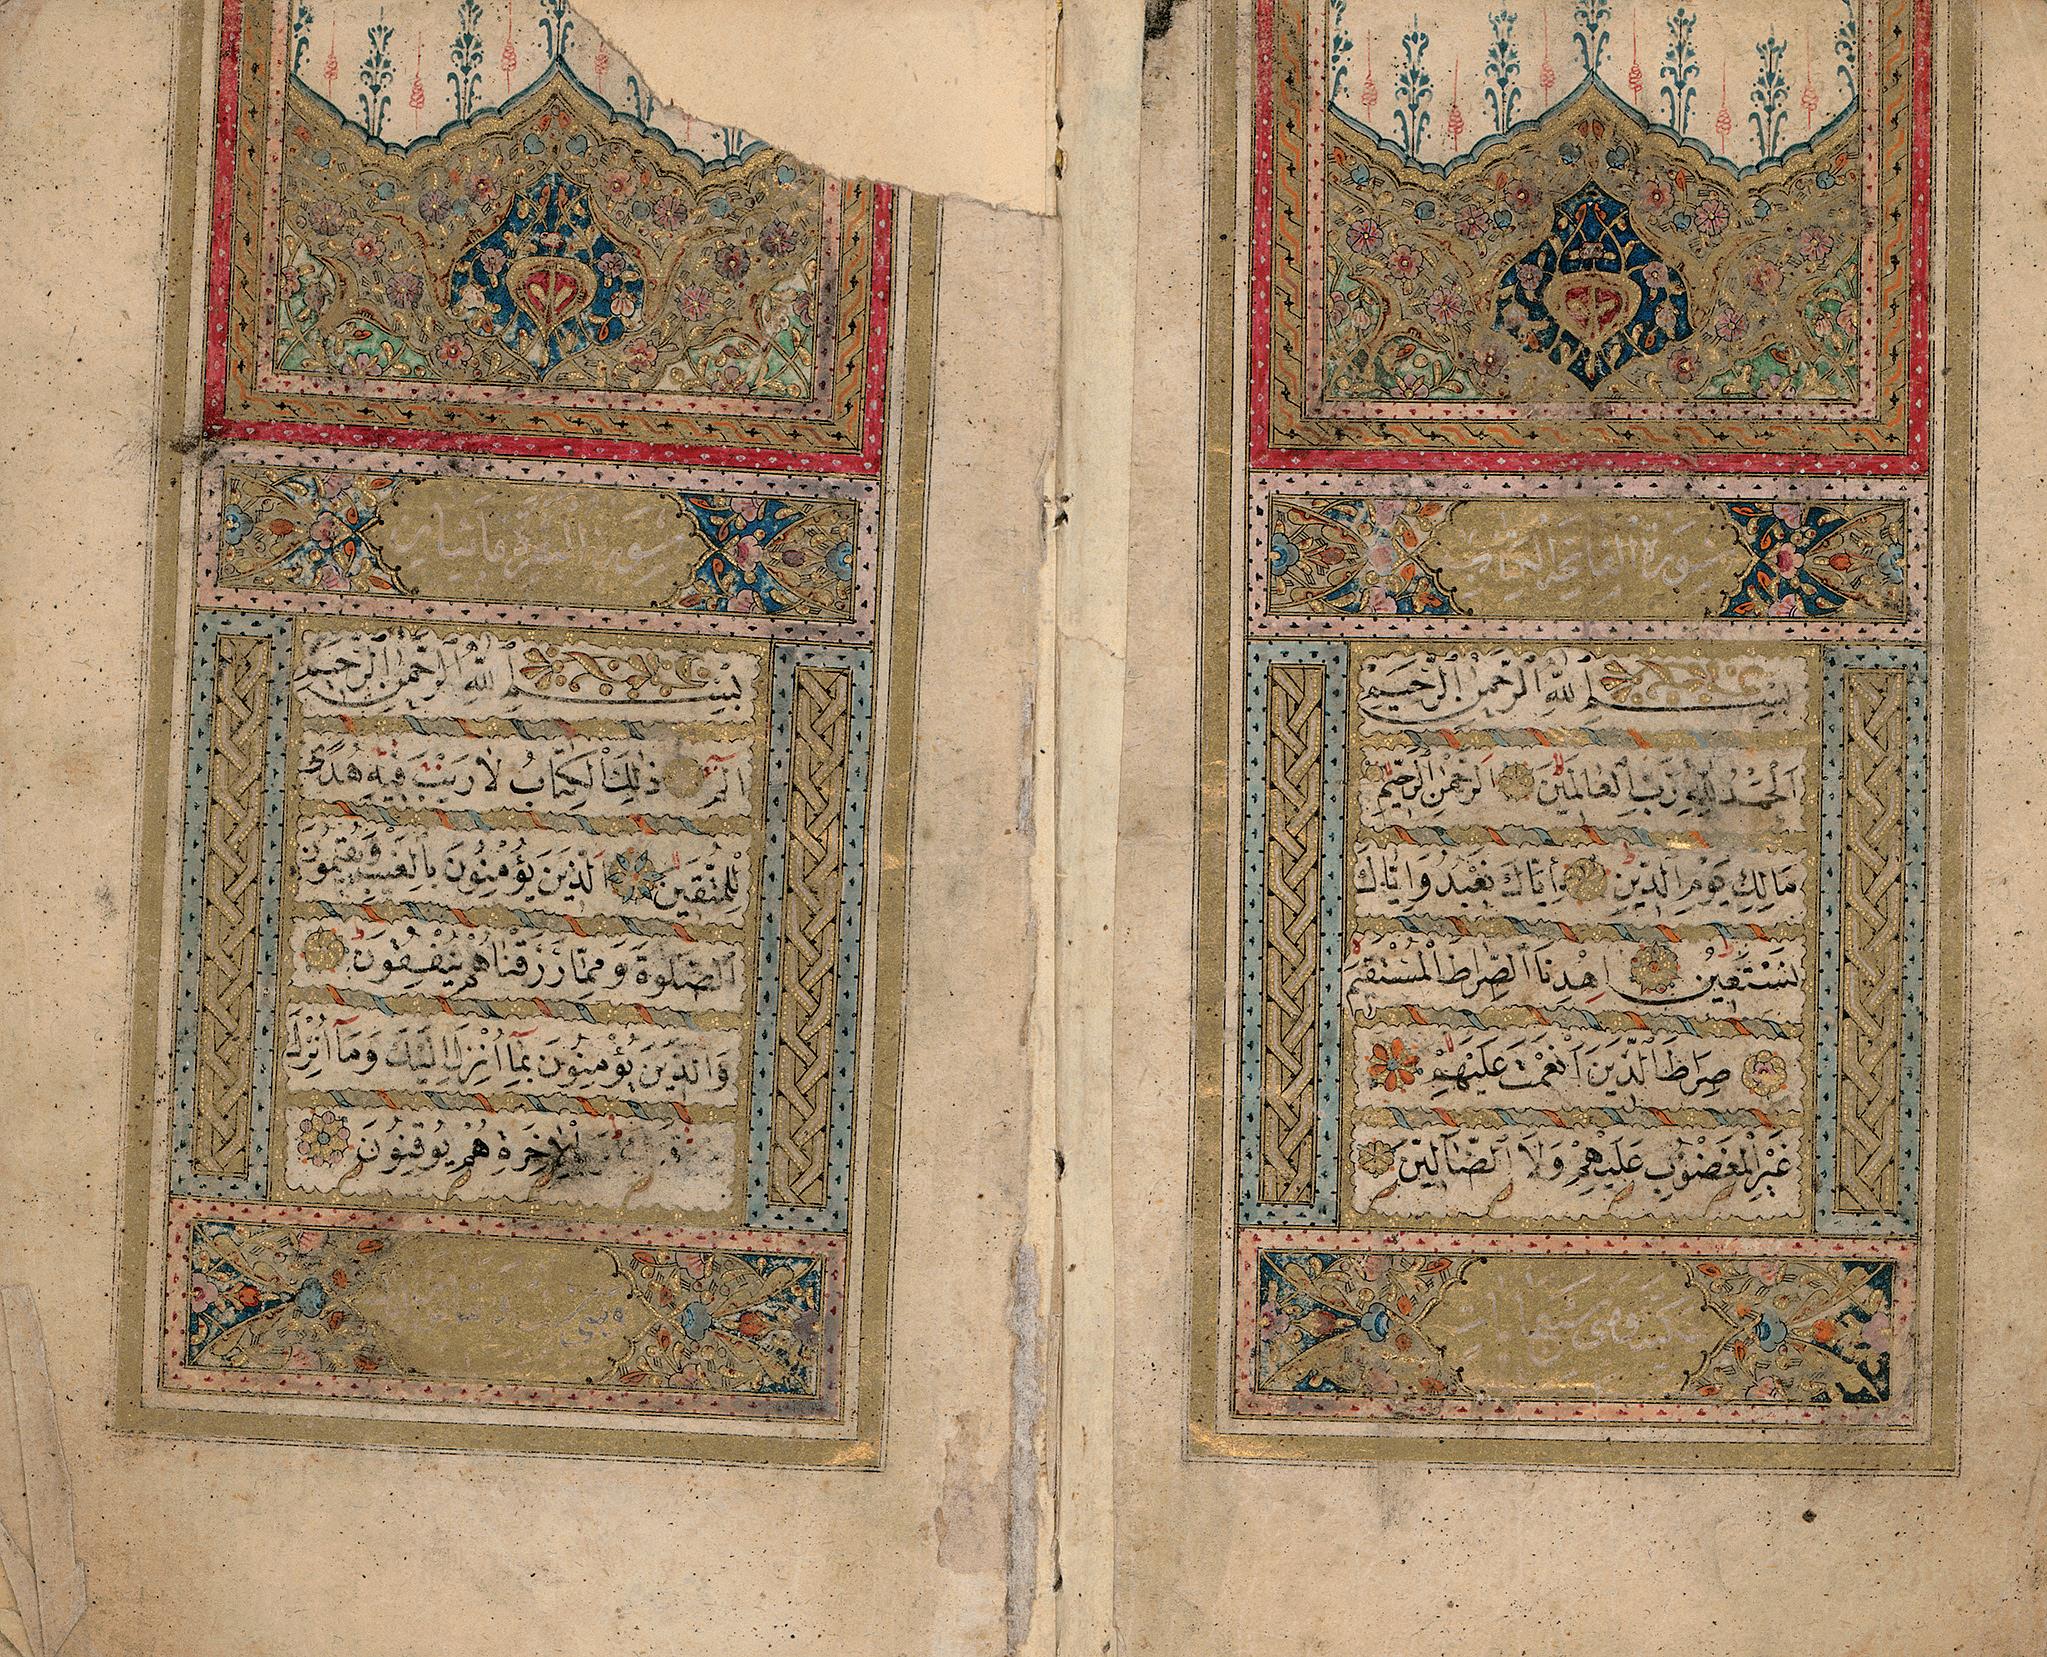 سورة الفاتحة الكتاب
بسم الله الرحمن الرحيم
اَلْحَمْدُ لِلّٰهِ رَبِّ الْعَالَمٖينَ اَلرَّحْمٰنِ الرَّحٖيمِ
مَالِكِ يَوْمِ الدّٖينِ اِيَّاكَ نَعْبُدُ وَاِيَّاكَ
نَسْتَعٖينُ اِهْدِنَا الصِّرَاطَ الْمُسْتَقٖيمَ
صِرَاطَ الَّذٖينَ اَنْعَمْتَ عَلَيْهِمْ
غَيْرِ الْمَغْضُوبِ عَلَيْهِمْ وَلَا الضَّالّٖينَ
مكية وهى سبع ايات
سورة البقرة مايتان
بسم الله الرحمن الرحيم
الٓمٓ ذٰلِكَ الْكِتَابُ لَا رَيْبَ فٖيهِ هُدًى
لِلْمُتَّقٖينَ اَلَّذٖينَ يُؤْمِنُونَ بِالْغَيْبِ وَيُقٖيمُونَ
الصَّلٰوةَ وَمِمَّا رَزَقْنَاهُمْ يُنْفِقُونَ
وَالَّذٖينَ يُؤْمِنُونَ بِمَٓا اُنْزِلَ اِلَيْكَ وَمَٓا اُنْزِلَ
الْاٰخِرَةِ هُمْ يُوقِنُونَ